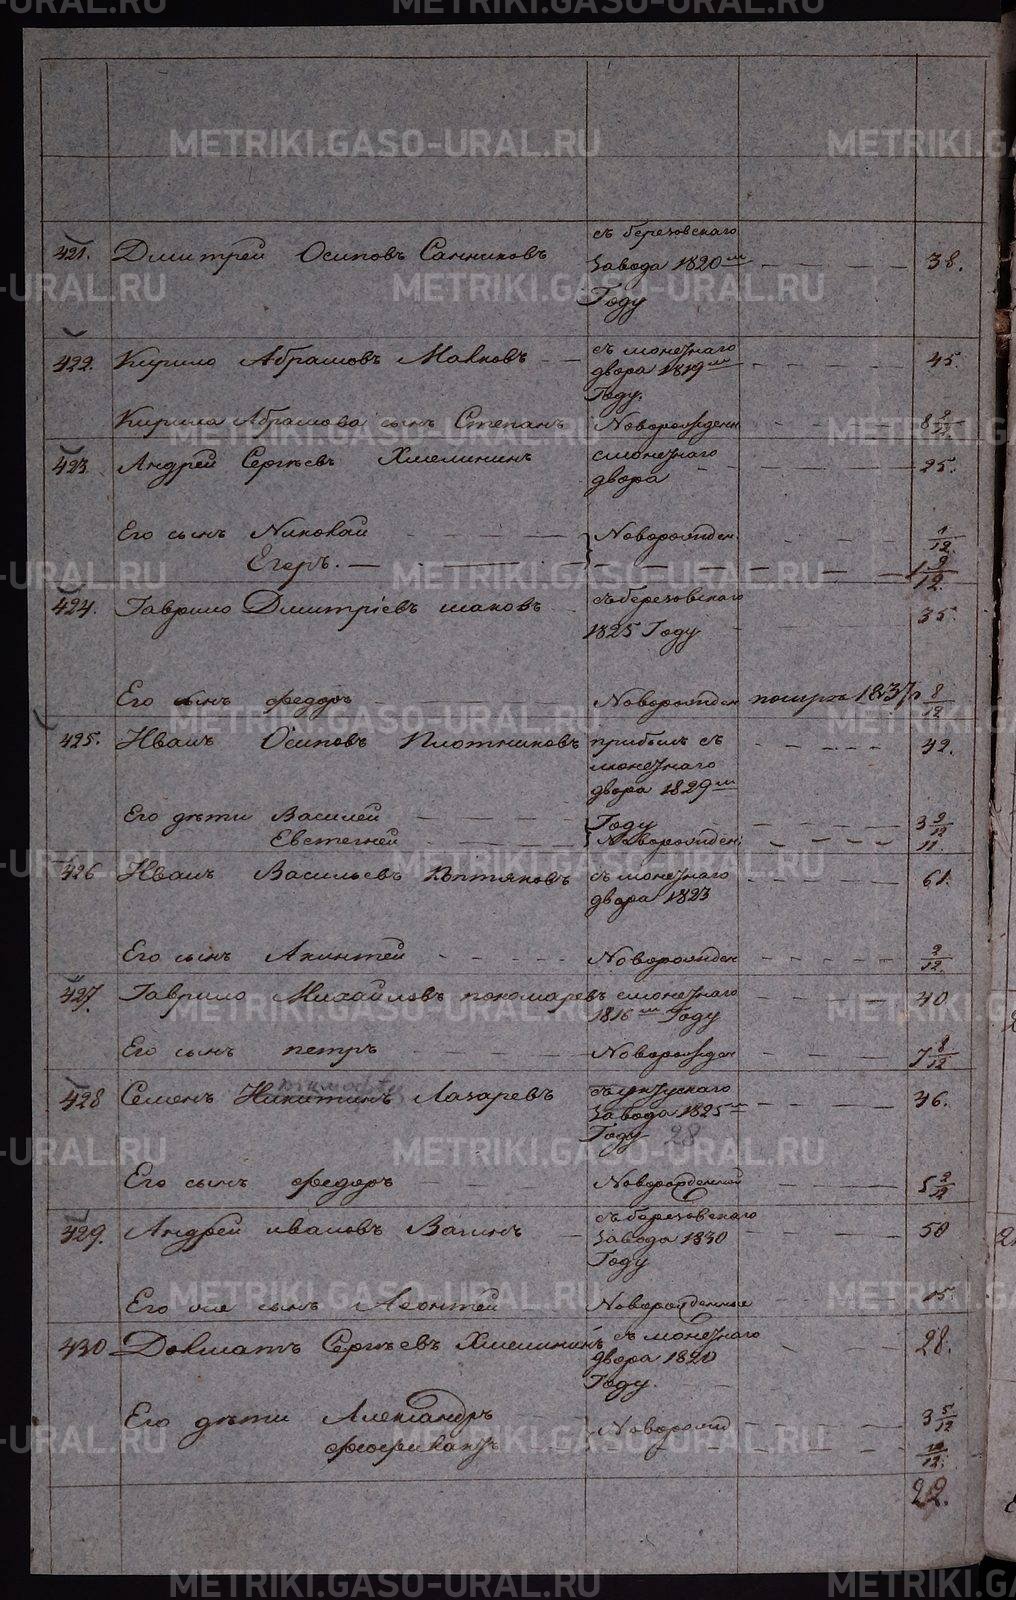 METRIKI.GASO-URAL.RU
421. Дмитрей Осиповъ Санниковъ съ березовскаго 38.
завода 1820 м
Году
422. Кирило Абрамовъ Малковъ съ монетнаго 45.
двора 1819 м
Году.
Кирила Абрамова сынъ Степанъ Новорожден 8 9/12
423 Андрей Сергѣевъ Хмелининъ смонетнаго 25.
двора
Его сынъ Николай Новорожден. 1/12
Егоръ. 1 9/12.
424. Гаврило Дмитріевъ съберезовскаго 35.
1825 Году
Его сынъ федоръ Новорожден 1837 8/12
425. Иванъ Осиповъ Плотниковъ прибылъ съ 42.
монетнаго
двора 1829 м
Его дѣти Василей Году 3 9/12
Евстегней Новорожден. 11.
426 Иванъ Васильевъ съ монетнаго 61.
двора 1823
Его сынъ Акинтей Новорожден 9/12.
427. Гаврило Михайловъ пономаревъ смонетнаго 40
1816 м Году
Его сынъ петръ Новорожден 7 8/12
428 Семенъ Никитинъ Лазаревъ 36.
завода 1825
Году 28
Его сынъ федоръ Новорожденной 5 9/12
429. Андрей ивановъ Вагинъ съ березовскаго 50
завода 1830
Году
Его же сынъ Леонтей Новорожденные 15.
430 Долматъ Сергѣевъ Хмелининъ съ монетнаго 28.
двора 1820
Году.
Его дѣти Александръ Новорожд 3 5/12
10/12.
22.